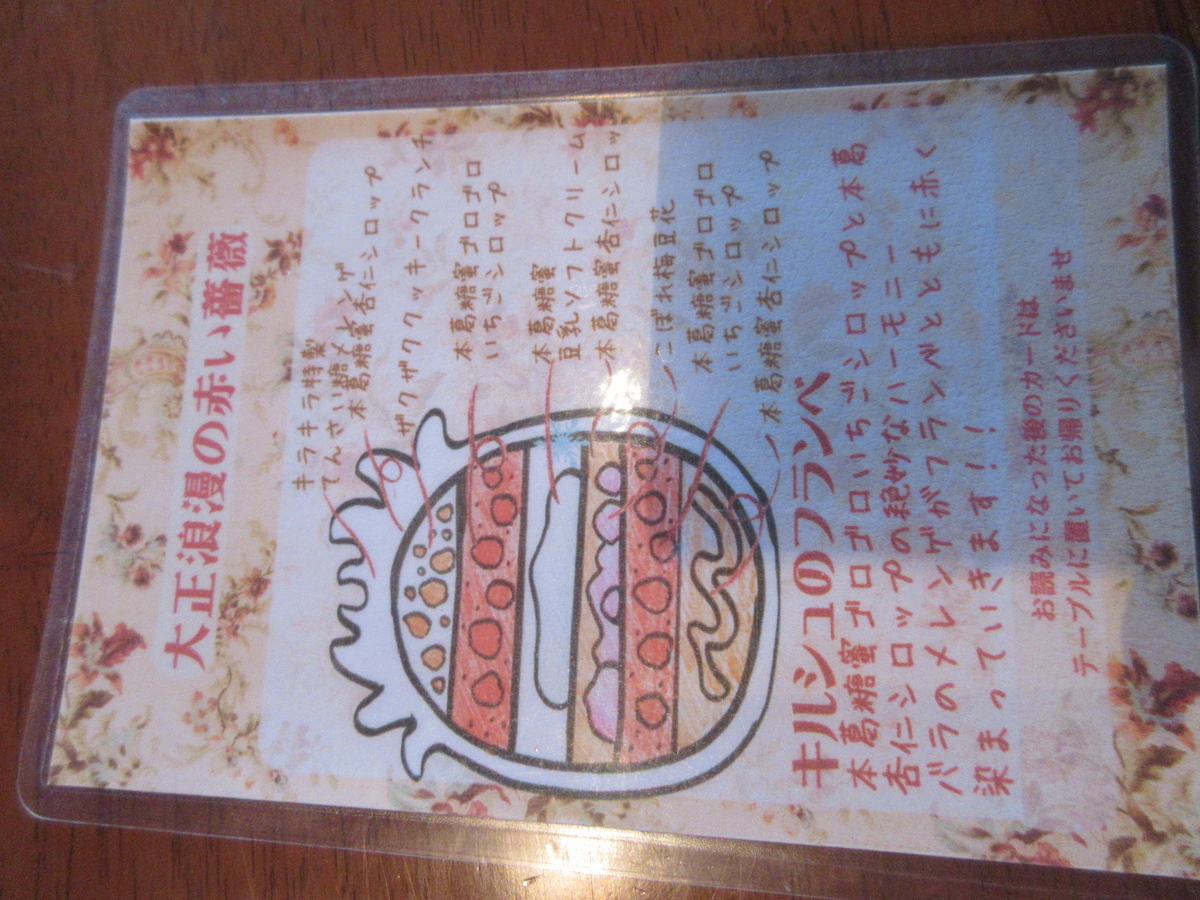 大正浪漫の赤い薔薇
キラキラ特製
てんさい糖メレンゲ
本葛糖蜜杏仁シロップ
ザクザククッキークランチ
本葛糖蜜ゴロゴロ
いちごシロップ
本葛糖蜜
豆乳ソフトクリーム
本葛糖蜜杏仁シロップ
こぼれ梅豆花
本葛糖蜜ゴロゴロ
いちごシロップ
本葛糖蜜杏仁シロップ
キルシュのフランベ
本葛糖蜜ゴロゴロいちごシロップと本葛
杏仁シロップの絶妙なハーモニー
バラのメレンゲがフランベとともに赤く
染まっていきます!!
お読みになった後のカードは
テーブルに置いてお帰りくださいませ